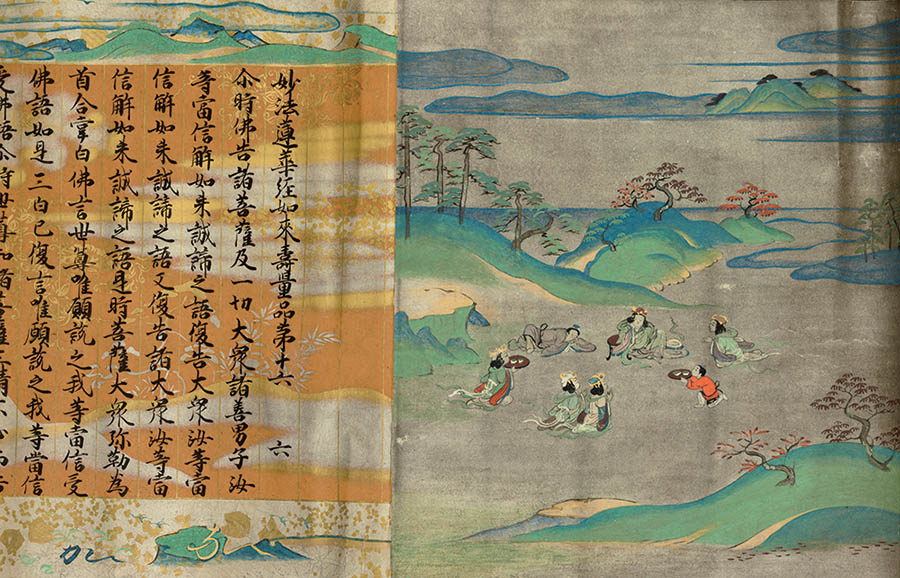 妙法蓮華経如來壽量品第十六 六
尒時佛告諸菩薩及一切大衆諸善男子汝
等當信解如来誠諦之語復告大衆汝等當
信解如来誠諦之語又復告諸大衆汝等當
信解如来誠諦之語是時菩薩大衆弥勒為
首合掌白佛言世尊唯願説之我等當信受
佛語如是三白已復言唯願説之我等當信
受佛語尒時世尊知諸菩薩三請不止而告